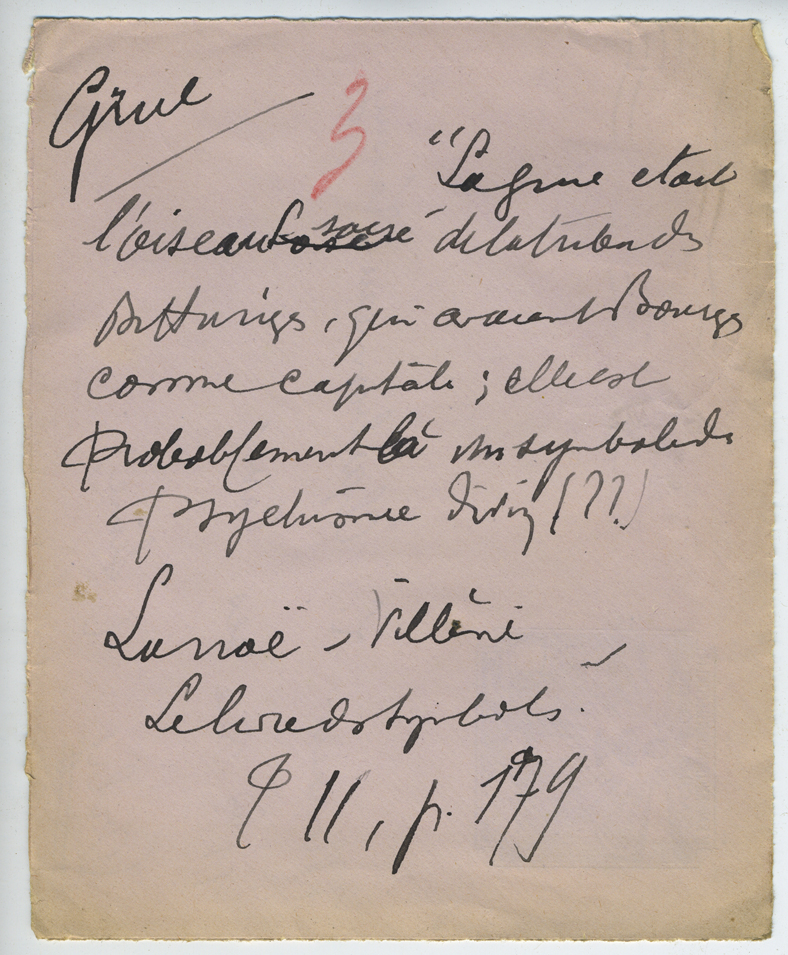 Grue
3
"La grue était
l'oiseau sacré de la tribu des
Bituriges, qui avaient Bourges
comme capitale ; elle est
probablement là un symbole de
psychisme divin (??)
Lanoë-Villène
Le livre des symboles.
II, p. 179